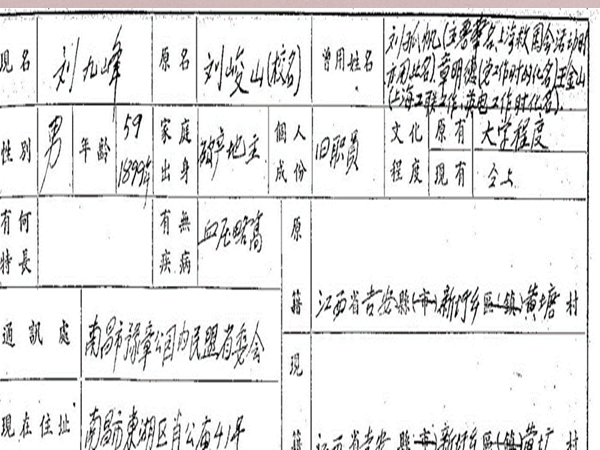 现名 刘九峰 原名 刘峻山(校名) 曾用姓名 刘孤帆(主要筆名、上海救国会活动时
亦用此名)章明德(党工作时的化名)王金山
(上海工联工作、英电工作时化名)
性别 男 年龄 59 1899年 家庭出身 破产地主 個人成份 旧职员 文化程度 原有 大学程度
现有 仝上
有何特長 有無疾病 血压略高 原籍 江西省吉安縣(市)新圩乡區(鎮)黄塘村
通訊處 南昌市豫章公园内民盟省委会
现在住址 南昌市東湖区肖公庙41号 现籍 江西省吉安縣(市)新圩乡區(鎮)黄塘村